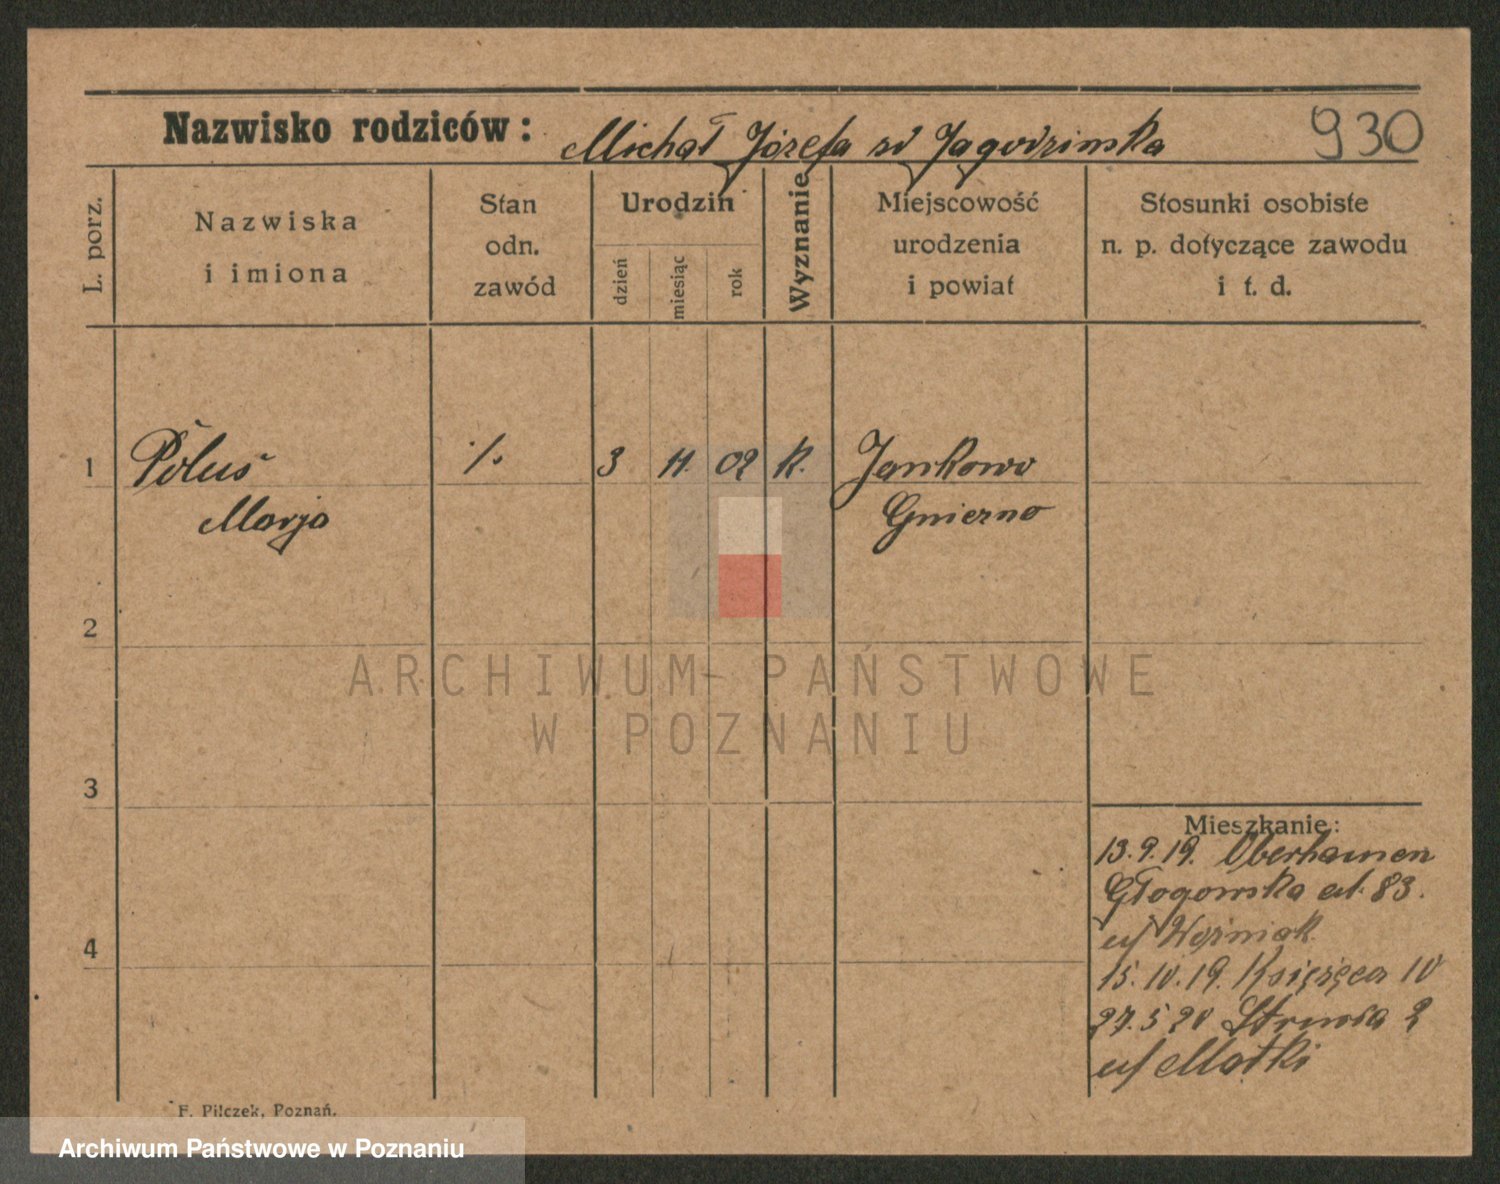 Nazwisko rodziców: Michał Józefa sd Jagodzinska 930
L. porz.
Nazwiska
i imiona
Stan
odn.
zawód
Urodzin
dzień
miesiąc
rok
Wyznanie
Miejscowość
urodzenia
i powiat
Stosunki osobiste
n. p. dotyczące zawodu
i t. d.
1 Poluś ·/. 3 11. 02 k. Jankowo
Marja Gniezno
2
3
4
Mieszkanie:
13.9.19. Oberhausen
Głogowska ul. 83.
u/ Woźniak
15.10.19. Księżęca 10
27.5 20 Strusia 2
u/ Matki
F. Pilczek, Poznań.
ARCHIWUM PAŃSTWOWE
W POZNANIU
Archiwum Państwowe w Poznaniu